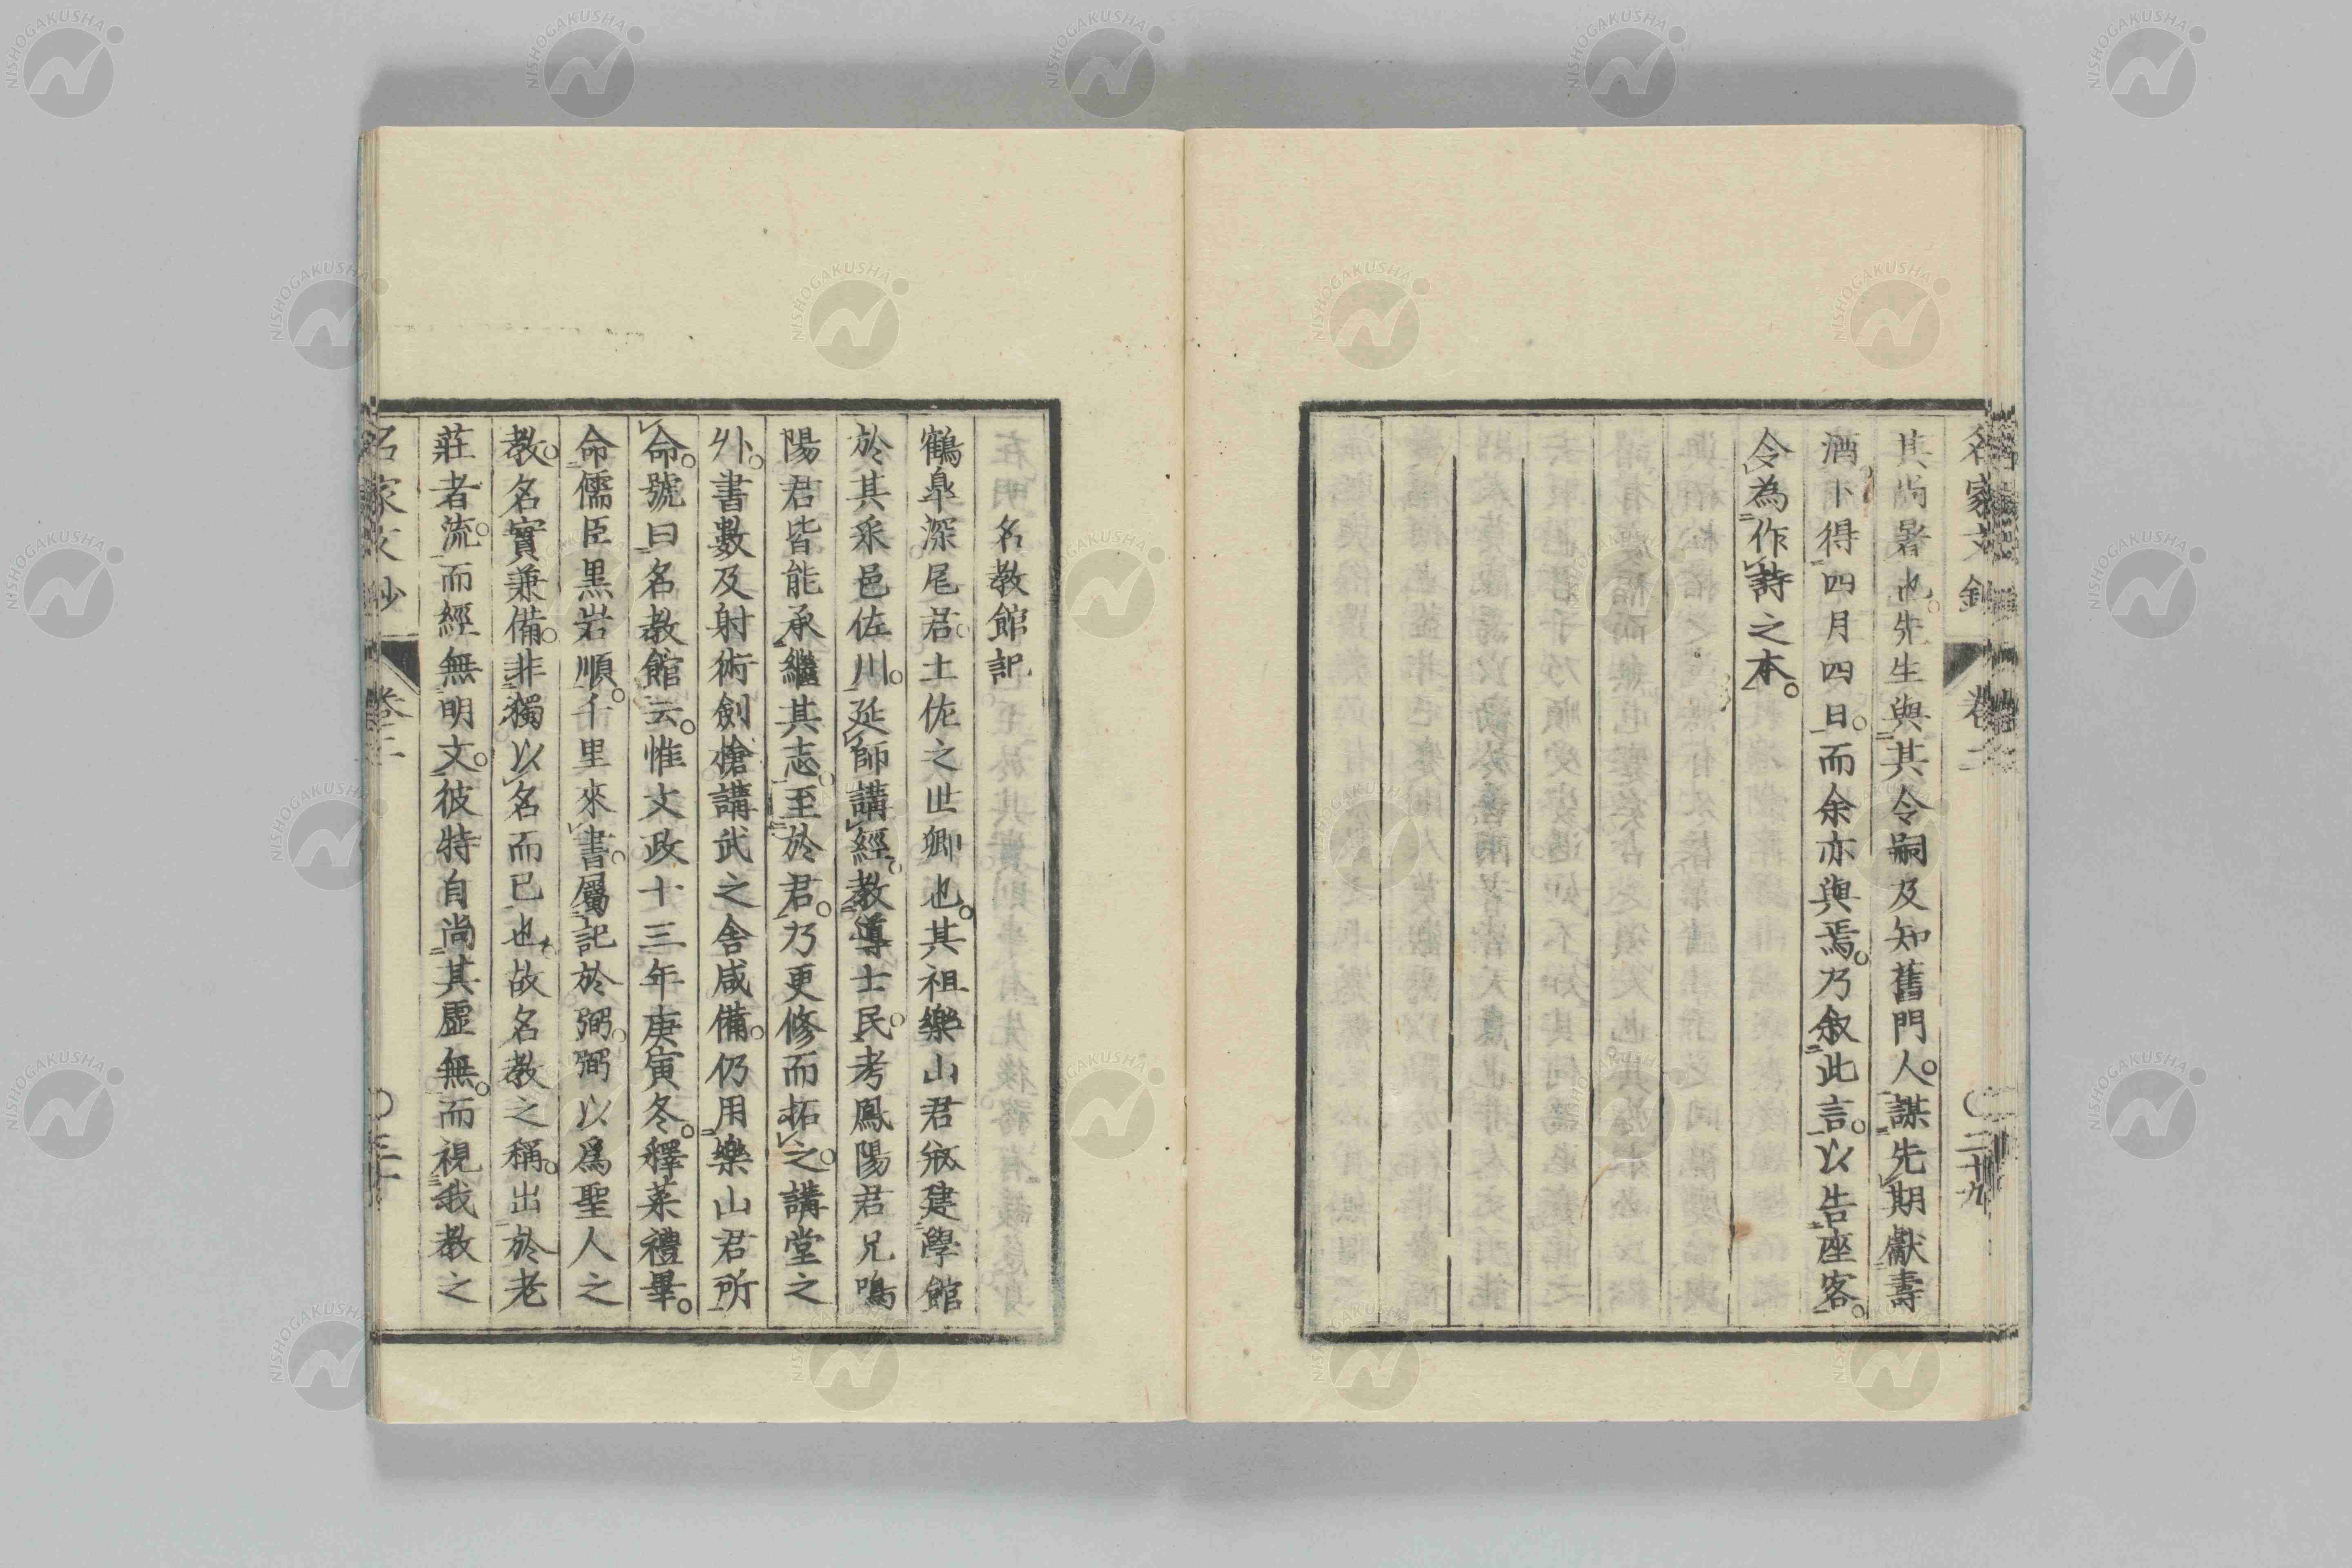 名家文鈔 卷二 〇二十九
其尚暑也。先生與其令嗣及知舊門人。謀先期獻壽
酒。卜得四月四日。而余亦與焉。乃叙此言。以告座客。
令為作詩之本。
名教館記
鶴皐深尾君土佐之世卿也。其祖樂山君始建學館
於其釆邑佐川。延師講經。教導士民。考鳳陽君兄鳴
陽君皆能承繼其志。至於君。乃更修而拓之。講堂之
外。書數及射術劍槍講武之舍咸備。仍用樂山君所
命。號曰名教館云。惟文政十三年庚寅冬。釋菜禮畢。
命儒臣黒岩順。千里來書。屬記於弼。弼以爲聖人之
教。名實兼備。非獨以名而已也。故名教之稱。出於老
莊者流。而經無明文。彼特自尚其虛無。而視我教之
名家文鈔 卷二 〇三十
NISHOGAKUSHA